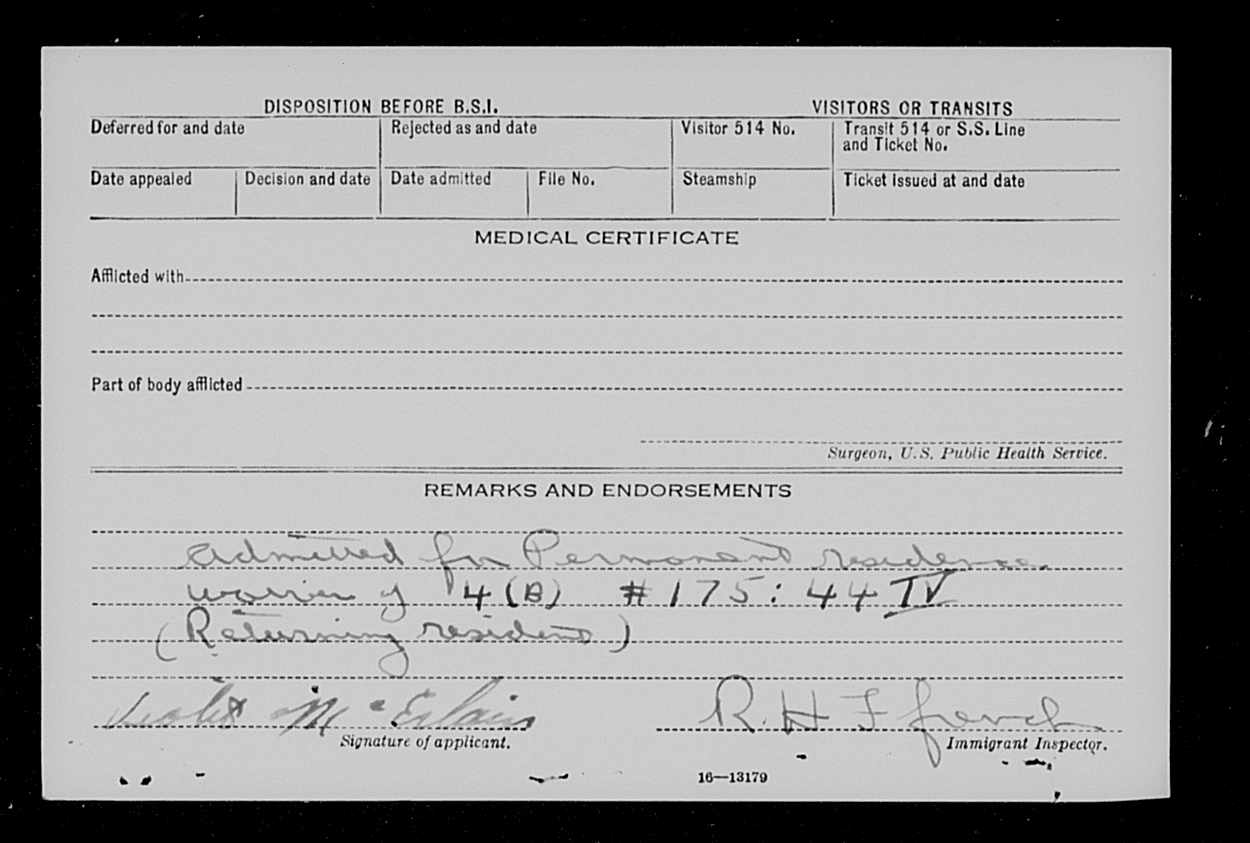 DISPOSITION BEFORE B.S.I. VISITORS OR TRANSITS
Deferred for and date Rejected as and date Visitor 514 No. Transit 514 or S.S. Line and Ticket No.
Date appealed Decision and date Date admitted File No. Steamship Ticket issued at and date
MEDICAL CERTIFICATE
Afflicted with
Part of body afflicted
Surgeon, U.S. Public Health Service.
REMARKS AND ENDORSEMENTS
Admitted for Permanent residence
waiver of 4(B) #175:44 IV
(Returning resident)
Violet R. H. F French
Signature of applicant. Immigrant Inspector.
16—13179